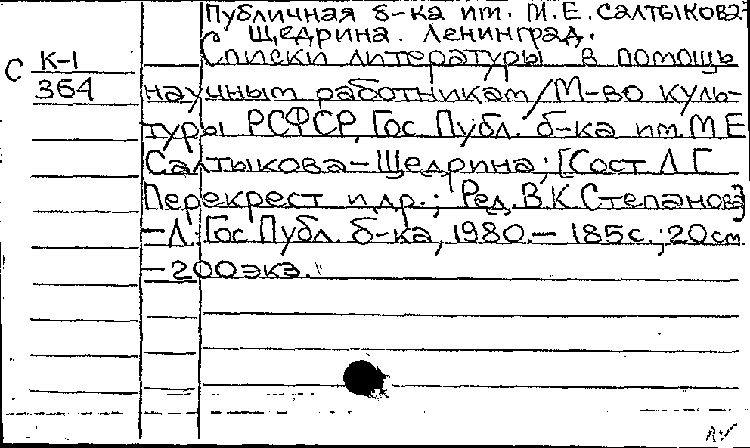 Публичная б-ка им. М.Е. Салтыкова-
Щедрина. Ленинград.
С К-1
364
Списки литературы в помощь
научным работникам/М-во куль-
туры РСФСР, Гос. Публ. б-ка им. М Е
Салтыкова-Щедрина; [Сост Л Г
Перекрест и др.; Ред. В.К. Степанова]
-Л.: Гос. Публ. б-ка, 1980.- 185с.; 20см
-200экз.